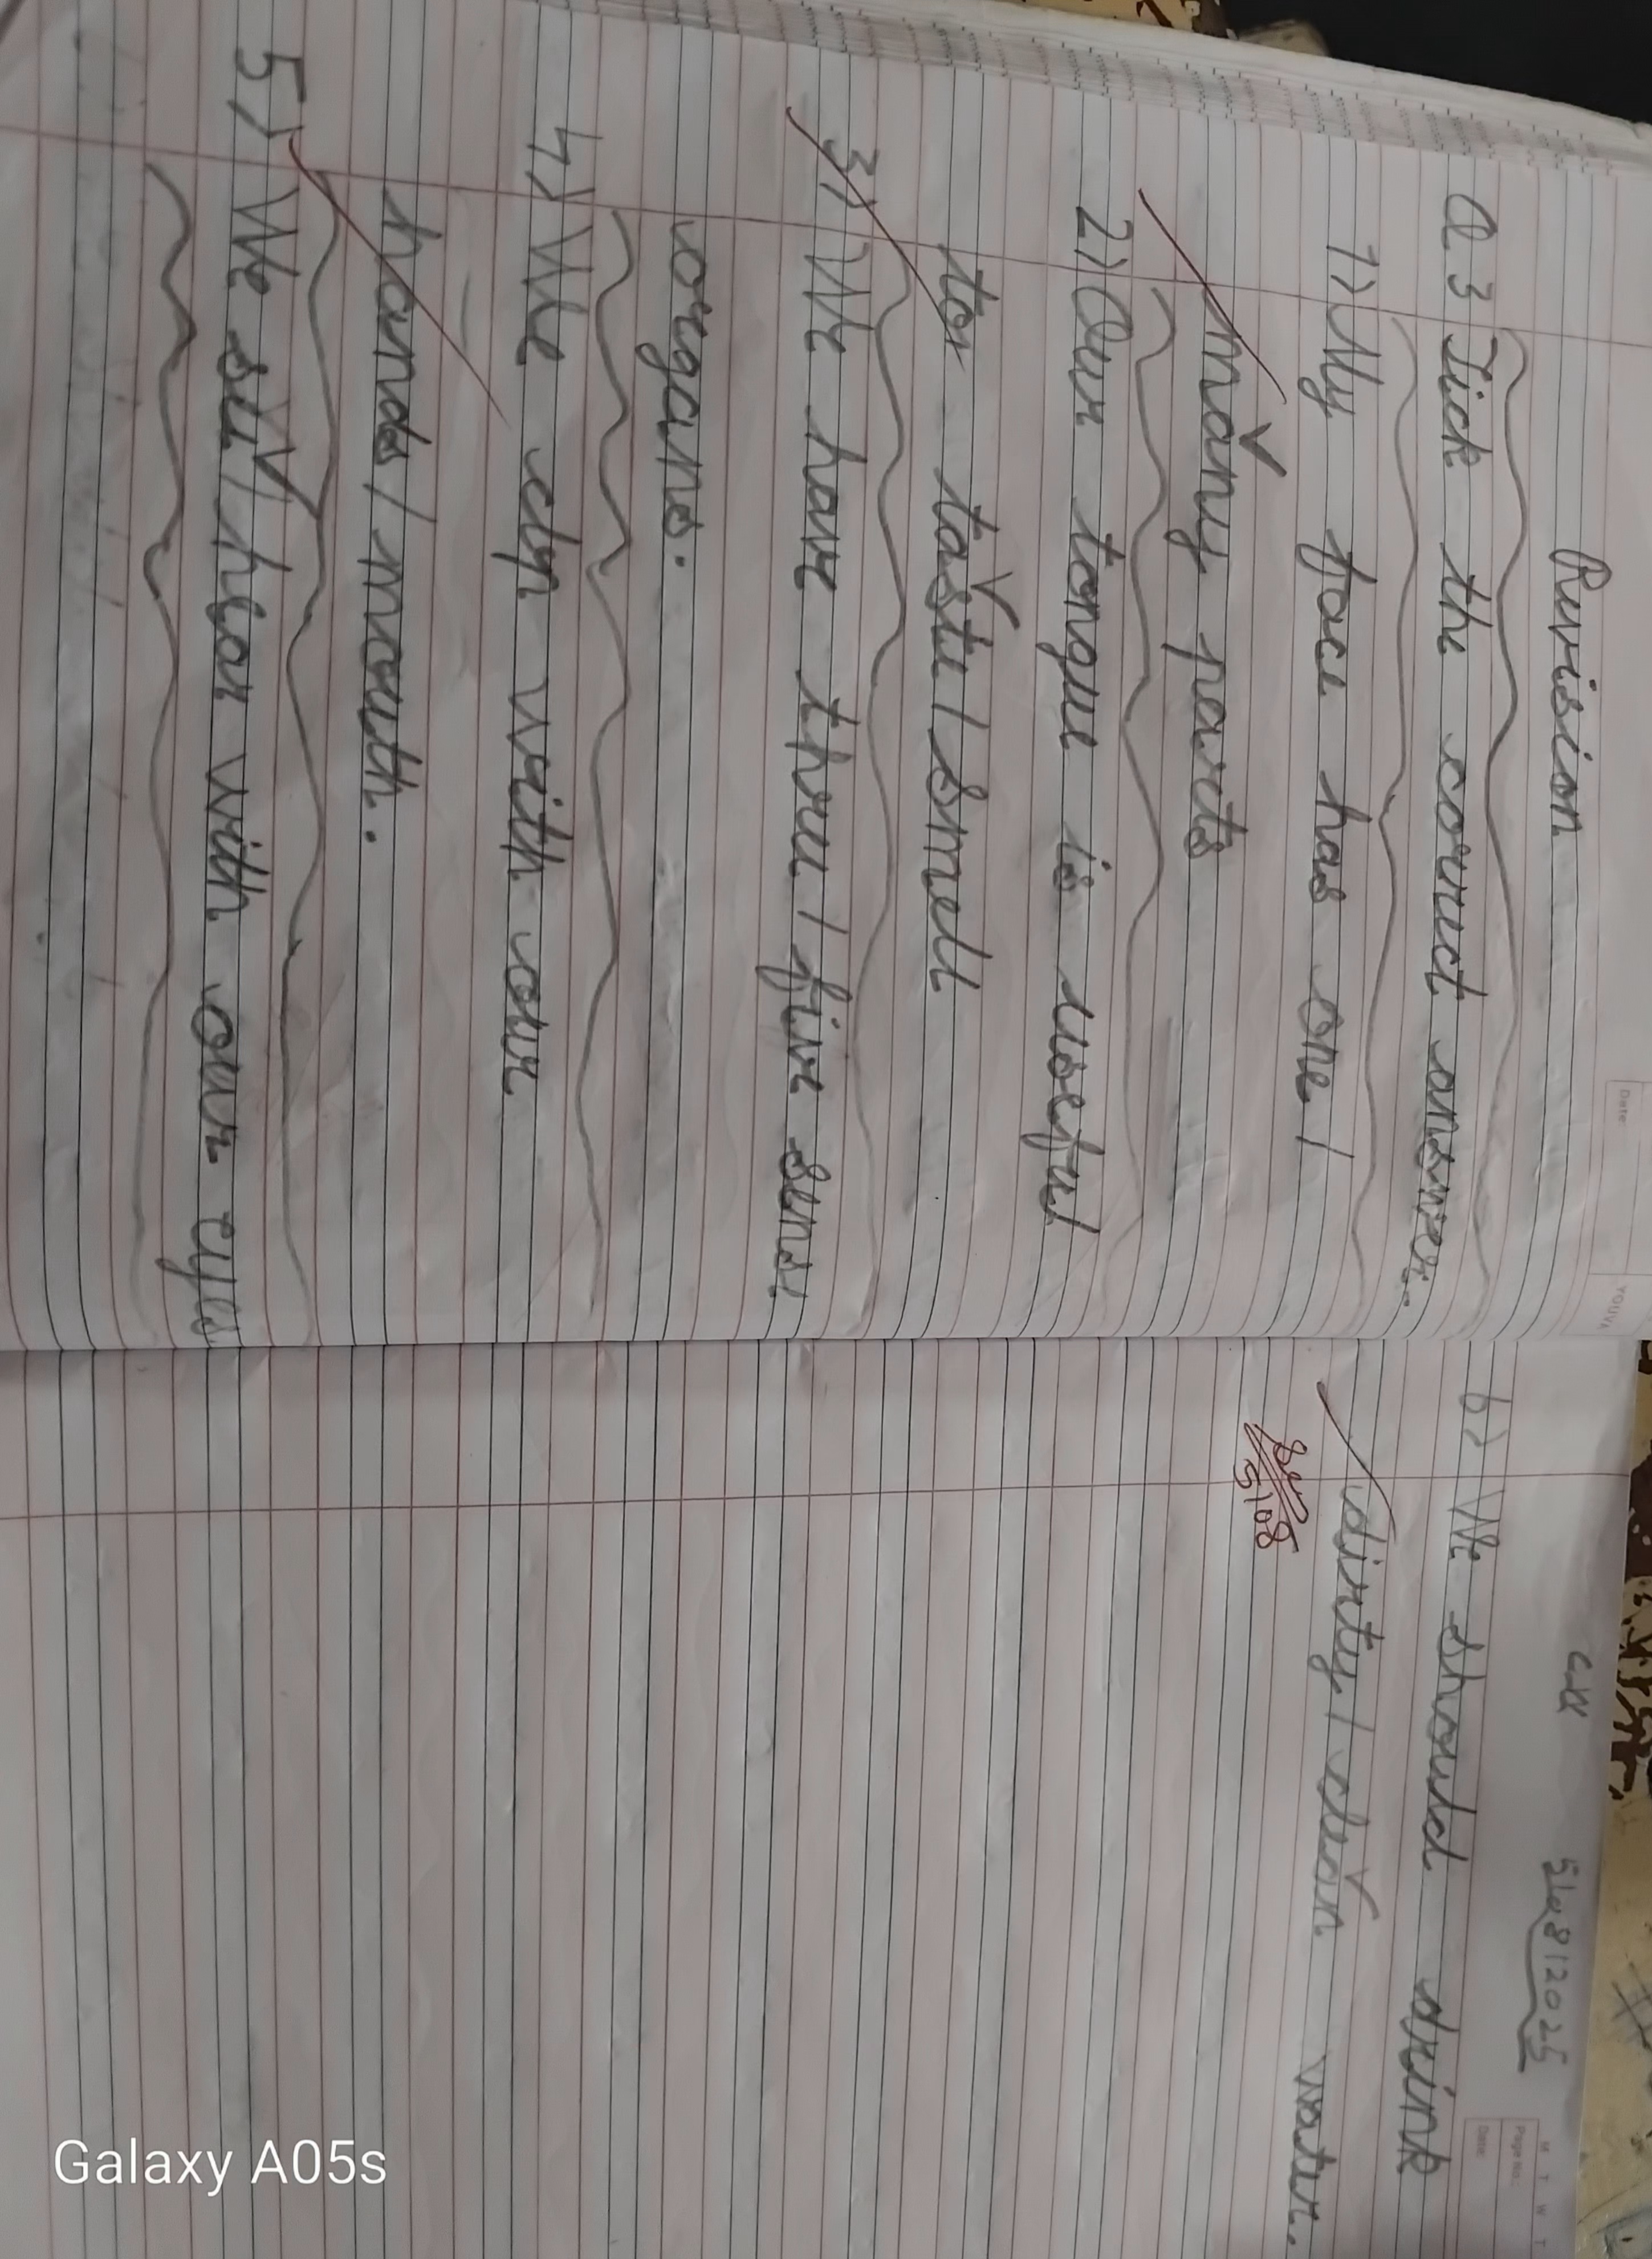 Revision
Q.3 Tick the correct answer.
1) My face has one /
many parts
2) Our tongue is useful
for taste / smell
3) We have three / five sense
organs.
4) We clap with our
hands / mouth.
5) We see / hear with our eyes
C.W
5/08/2025
6) We should drink
dirty / clean water.
5/08
Date:
YOUVA
M T W T
Page No.:
Date:
Galaxy A05s